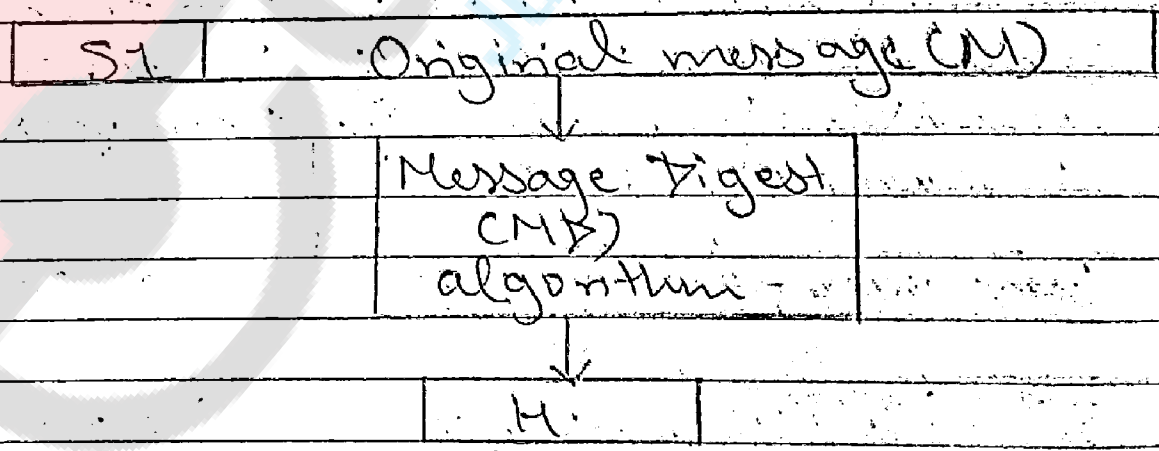 S1 Original message (M)
Message Digest
(MD)
algorithm
H